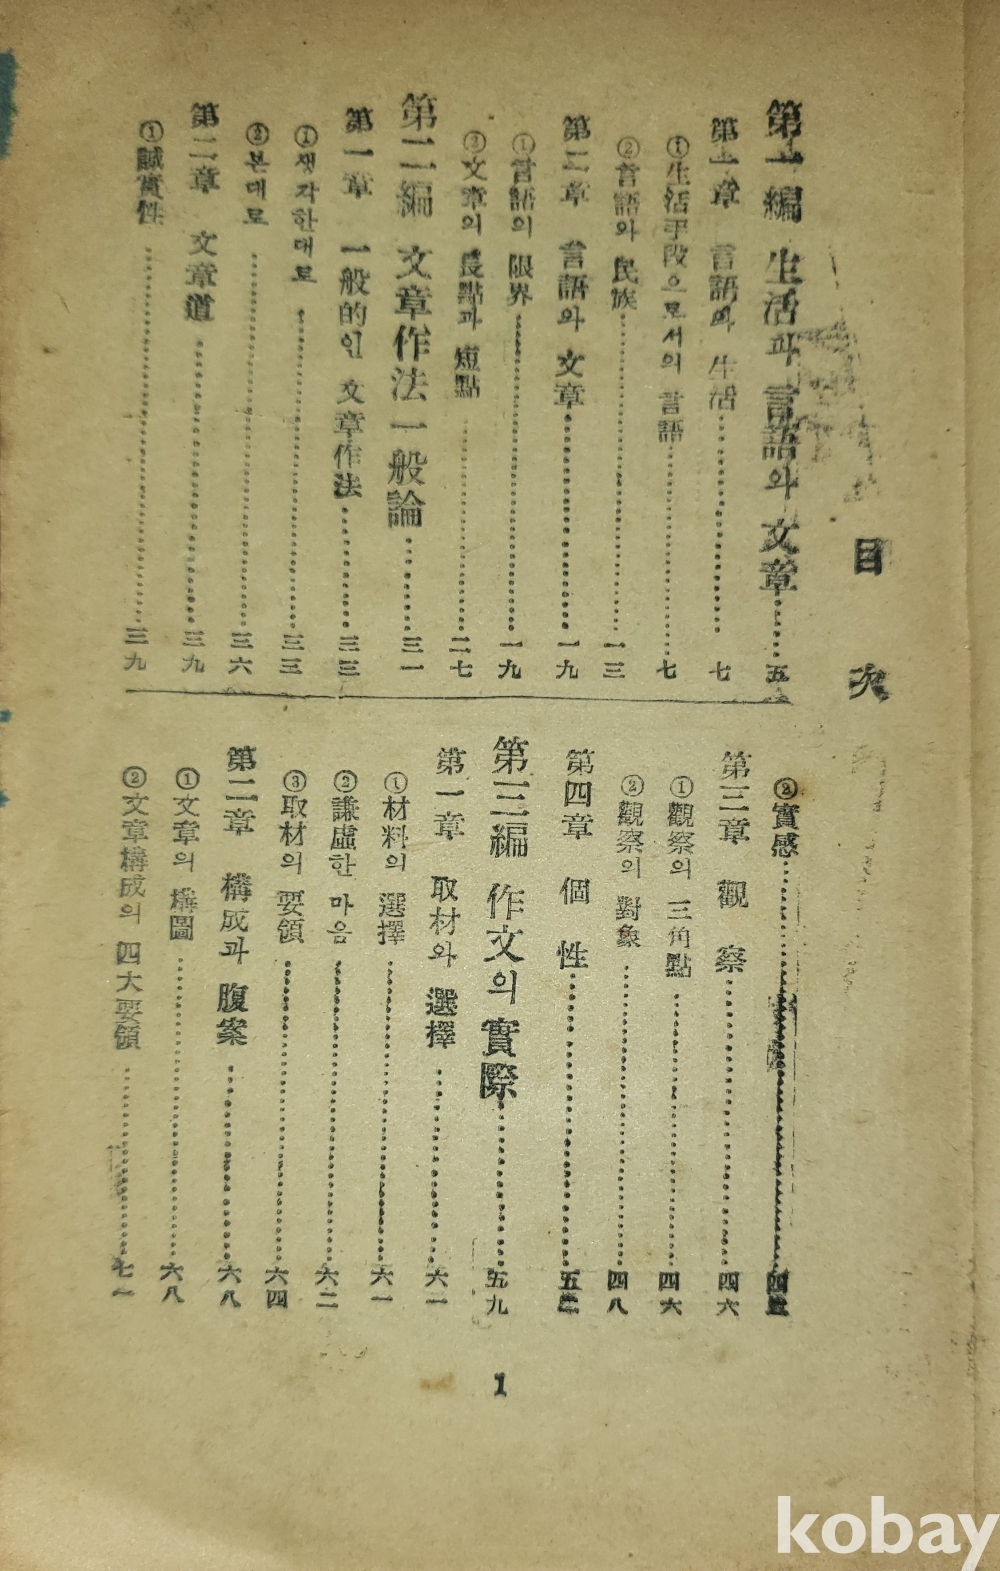 目次
第一編 生活과 言語와 文章……五
第一章 言語와 生活……七
①生活手段으로서의 言語……七
②言語와 民族……一三
第二章 言語와 文章……一九
①言語의 限界……一九
②文章의 長點과 短點……二七
第二編 文章作法一般論……三一
第一章 一般的인 文章作法……三三
①생각한대로……三三
②본대로……三六
第二章 文章道……三九
①誠實性……三九
②實感……四
第三章 觀察……四六
①觀察의 三角點……四六
②觀察의 對象……四八
第四章 個性……五
第三編 作文의 實際……五九
第一章 取材와 選擇……六一
①材料의 選擇……六一
②謙虛한 마음……六二
③取材의 要領……六四
第二章 構成과 腹案……六八
①文章의 構圖……六八
②文章構成의 四大要領……七一
1
kobay